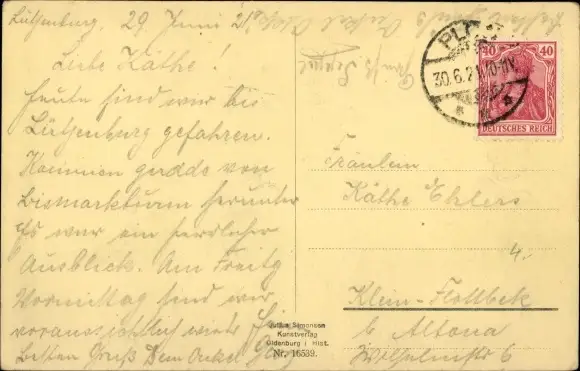 Lütjenburg, 29. Juni 21.
Liebe Käthe!
Heute sind wir bis
Lütjenburg gefahren.
Kommen gerade von
Bismarkturm herunter
Es war ein herrlicher
Ausblick. Am Freitg
Vormittag sind wir
voraussichtlich wieder
besten Gruß Dein Onkel
Julius Simonsen
Kunstverlag
Oldenburg i. Holst.
Nr. 16539.
30.6.21.10-11V.
40 40
DEUTSCHES REICH
Fräulein
Käthe Ehlers
4.
Klein-Flottbek
b Altona